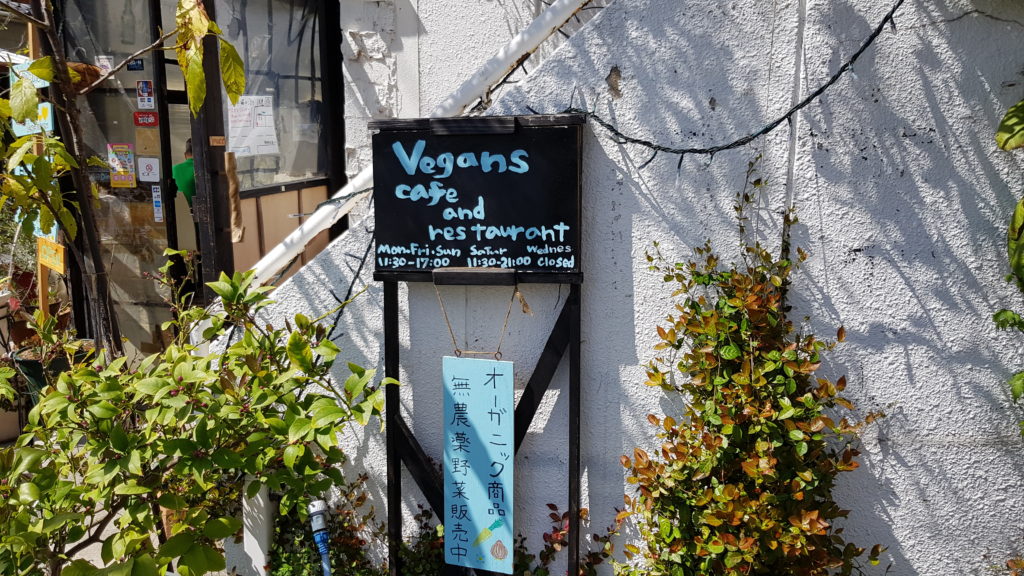 Vegans
cafe
and
restaurant
Mon.Fri.Sun Satur Wednes
11:30-17:00 11:30-21:00 Closed
オーガニック商品
無農薬野菜販売中